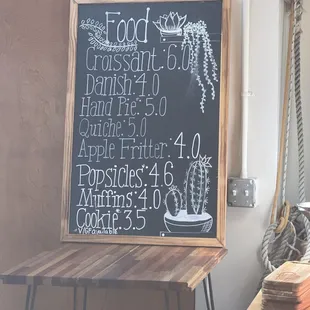 Food
Croissant: 6.0
Danish: 4.0
Hand Pie: 5.0
Quiche: 5.0
Apple Fritter: 4.0
Popsicles*: 4.6
Muffins*: 4.0
Cookie*: 3.5